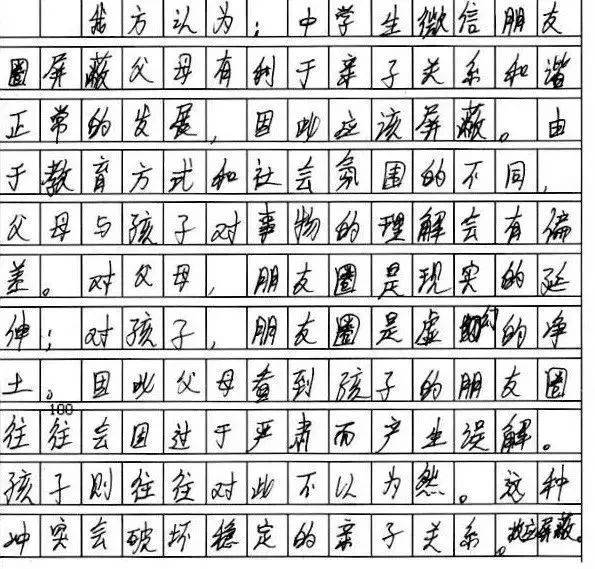 我方认为：中学生微信朋友
圈屏蔽父母有利于亲子关系和谐
正常的发展，因此应该屏蔽。由
于教育方式和社会氛围的不同，
父母与孩子对事物的理解会有偏
差。对父母，朋友圈是现实的延
伸；对孩子，朋友圈是虚幻的净
土。因此父母看到孩子的朋友圈
100
往往会因过于严肃而产生误解。
孩子则往往对此不以为然。这种
冲突会破坏稳定的亲子关系。故应屏蔽。